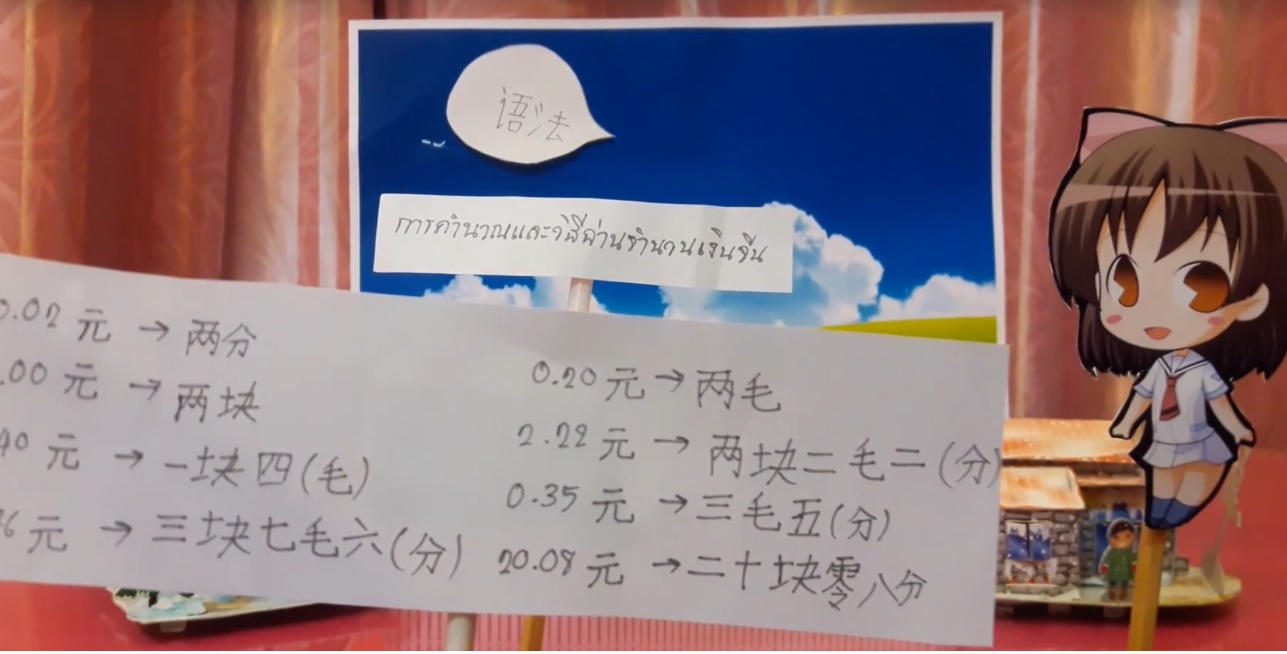 语法
การคำนวณและวิธีอ่านจำนวนเงินจีน
0.02 元 → 两分
.00 元 → 两块
40 元 → 一块四(毛)
76 元 → 三块七毛六(分)
0.20 元 → 两毛
2.22 元 → 两块二毛二(分)
0.35 元 → 三毛五(分)
20.08 元 → 二十块零八分